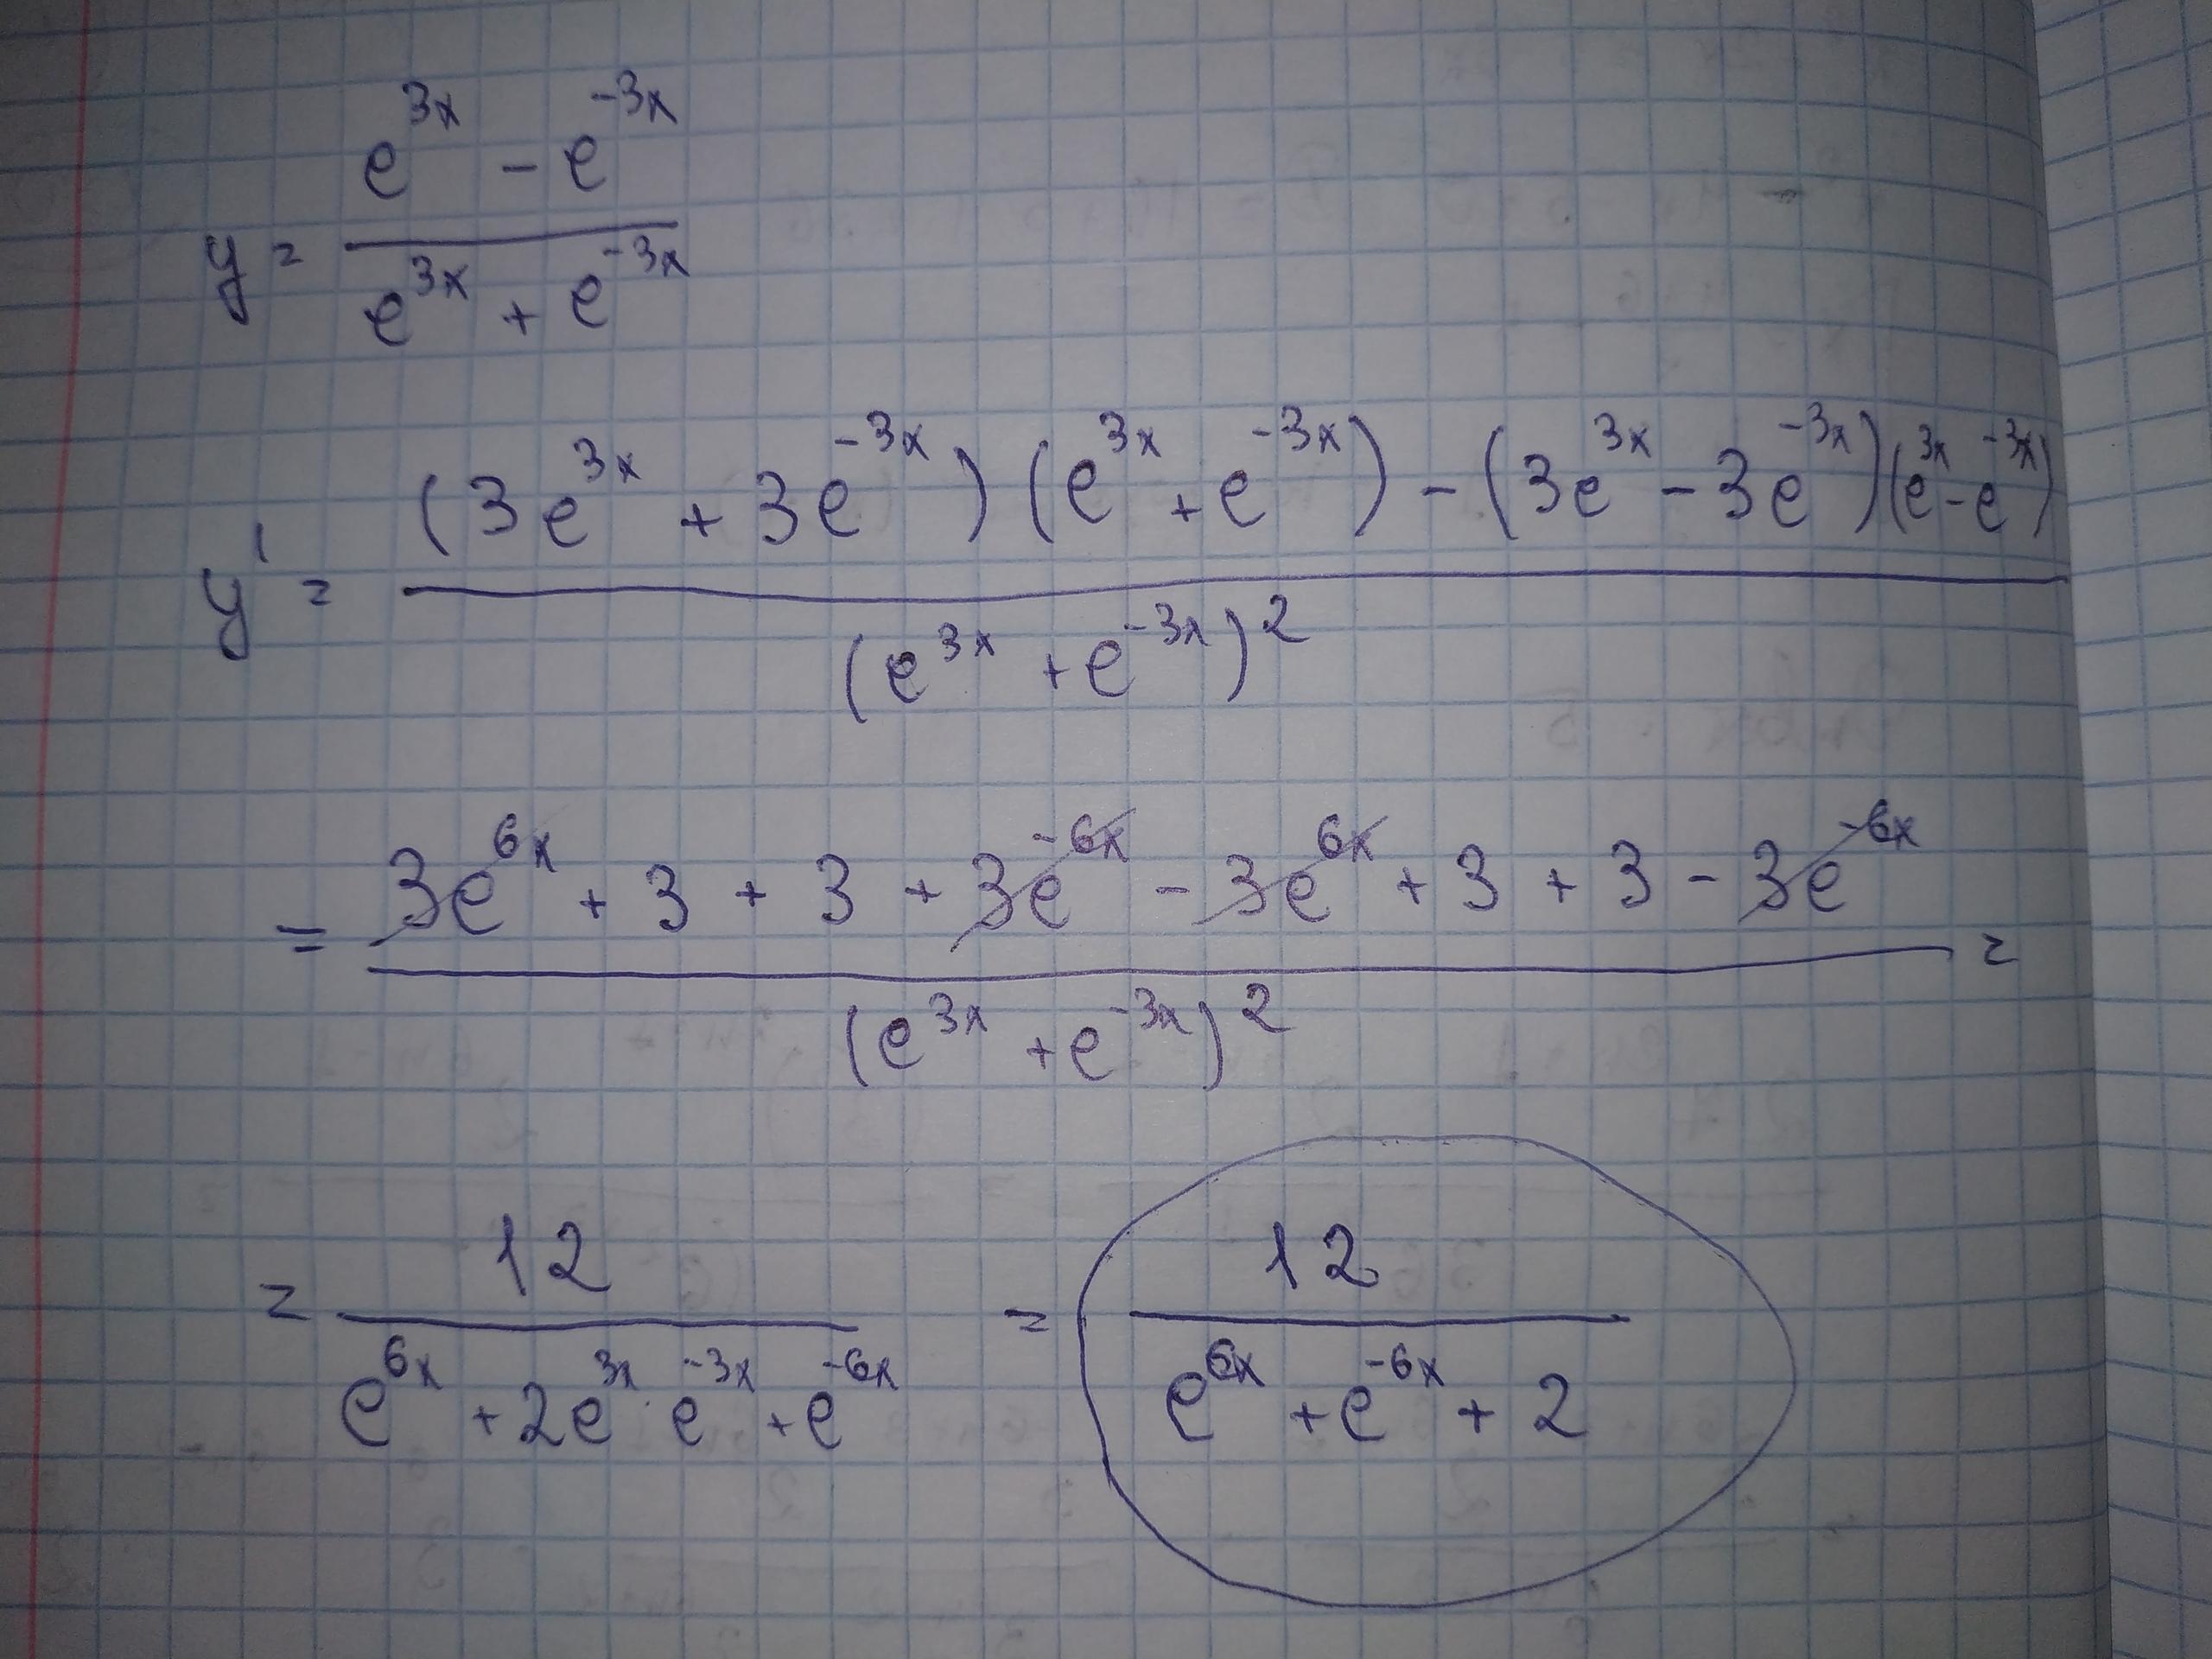 y = (e^{3x} - e^{-3x}) / (e^{3x} + e^{-3x})
y' = ((3e^{3x} + 3e^{-3x})(e^{3x} + e^{-3x}) - (3e^{3x} - 3e^{-3x})(e^{3x} - e^{-3x})) / (e^{3x} + e^{-3x})^2
= (3e^{6x} + 3 + 3 + 3e^{-6x} - 3e^{6x} + 3 + 3 - 3e^{-6x}) / (e^{3x} + e^{-3x})^2 =
= 12 / (e^{6x} + 2e^{3x} · e^{-3x} + e^{-6x}) = 12 / (e^{6x} + e^{-6x} + 2)